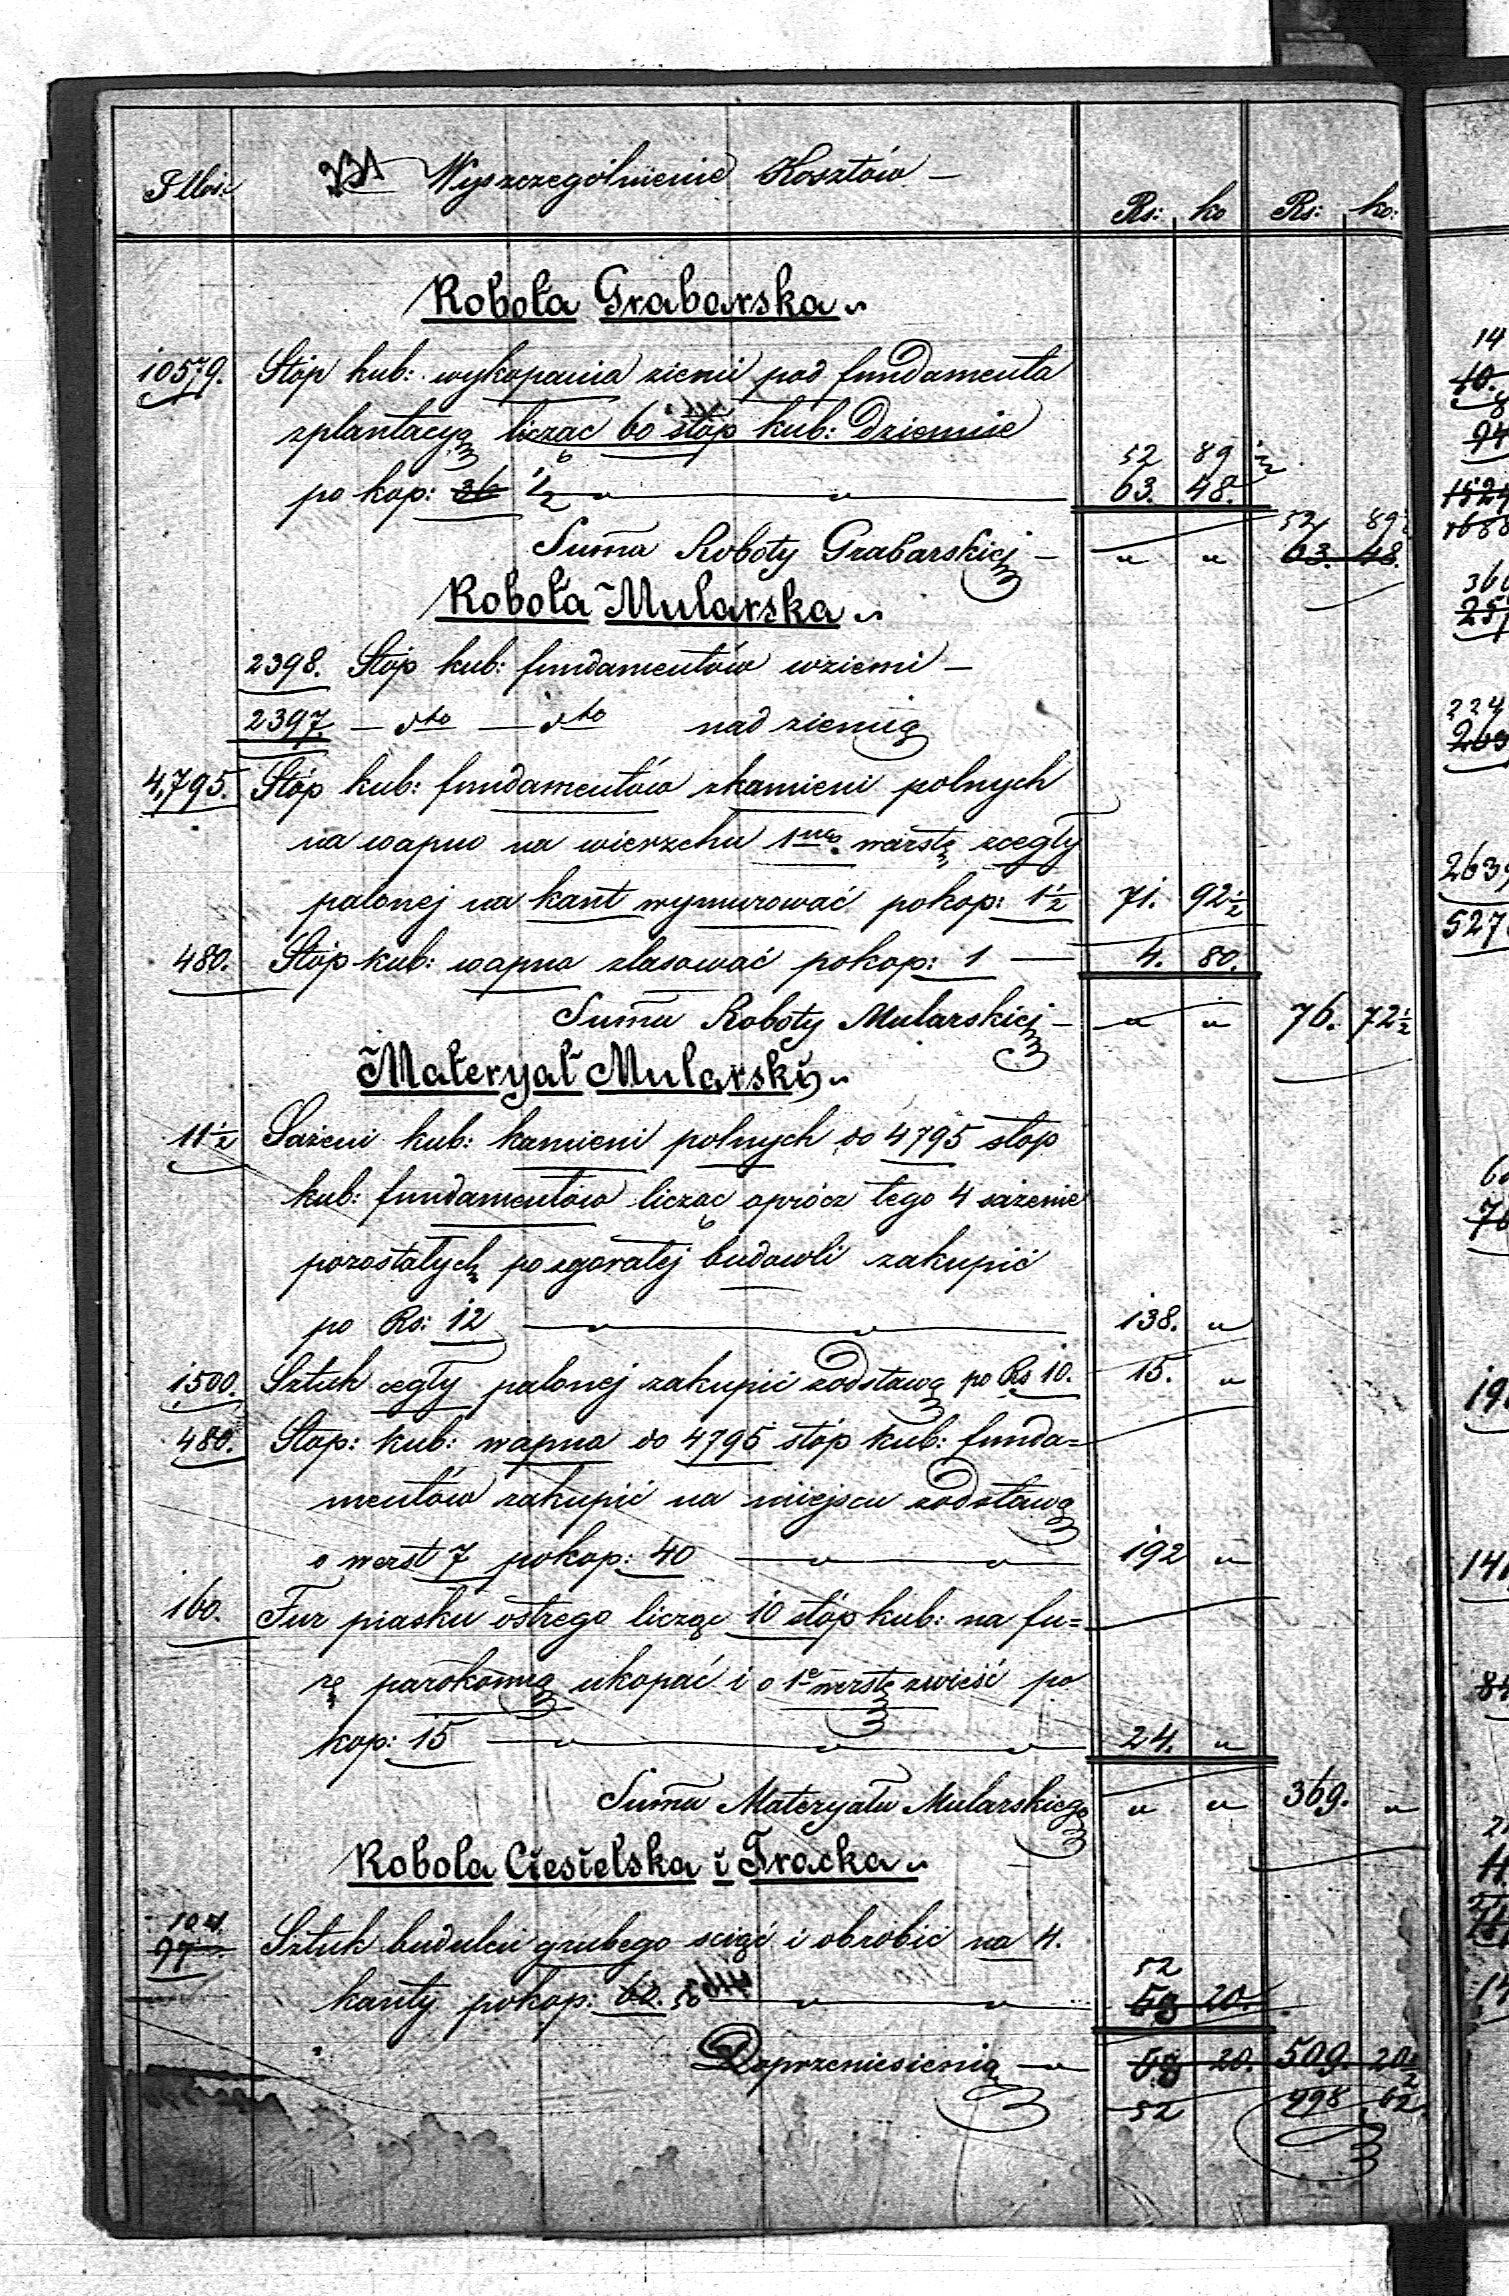 Illość 231 Wyszczególnienie Kosztów — Rs: ko Rs: ko:
Robota Grabarska
10579. Stóp kub: wykopania ziemii pod fundamenta
zplantacyą licząc 60 stóp kub: dziennie
52 89 ½
po kop: 36 ½ 63. 48.
52 89
Suma Roboty Grabarskiej — " " 63. 48.
Robota Mularska
2398. Stóp kub: fundamentów wziemi —
2397. — dto — dto nad ziemią
4,795. Stóp kub: fundamentów zkamieni polnych
na wapno na wierzchu 1ną warstę zcegły
palonej na kant wymurować pokop: 1½ 71. 92½
480. Stóp kub: wapna zlasować pokop: 1 — 4. 80.
Suma Roboty Mularskiej — " " 76. 72½
Materyał Mularski
11½ Sażeni kub: kamieni polnych do 4795 stóp
kub: fundamentów licząc oprócz tego 4 sażenie
pozostałych pozgorałej budowli zakupić
po Rs: 12 138. "
1500. Sztuk cegły palonej zakupić zodstawą po Rs 10. 15. "
480. Stóp: kub: wapna do 4795 stóp kub: funda=
mentów zakupić na miejscu zodstawą
o werst 7 pokop: 40 192 "
160. Fur piasku ostrego licząc 10 stóp kub: na fu=
rę parokonną ukopać i o 1ę werstę zwieść po
kop: 15 24. "
Suma Materyału Mularskiego " " 369. "
Robota Ciesielska i Tracka
104
97 Sztuk budulcu grubego sciąć i obrobić na 4.
52
kanty pokop: 60. 50 58 20.
Doprzeniesienia — 58 20. 509. 20½
52 498 62